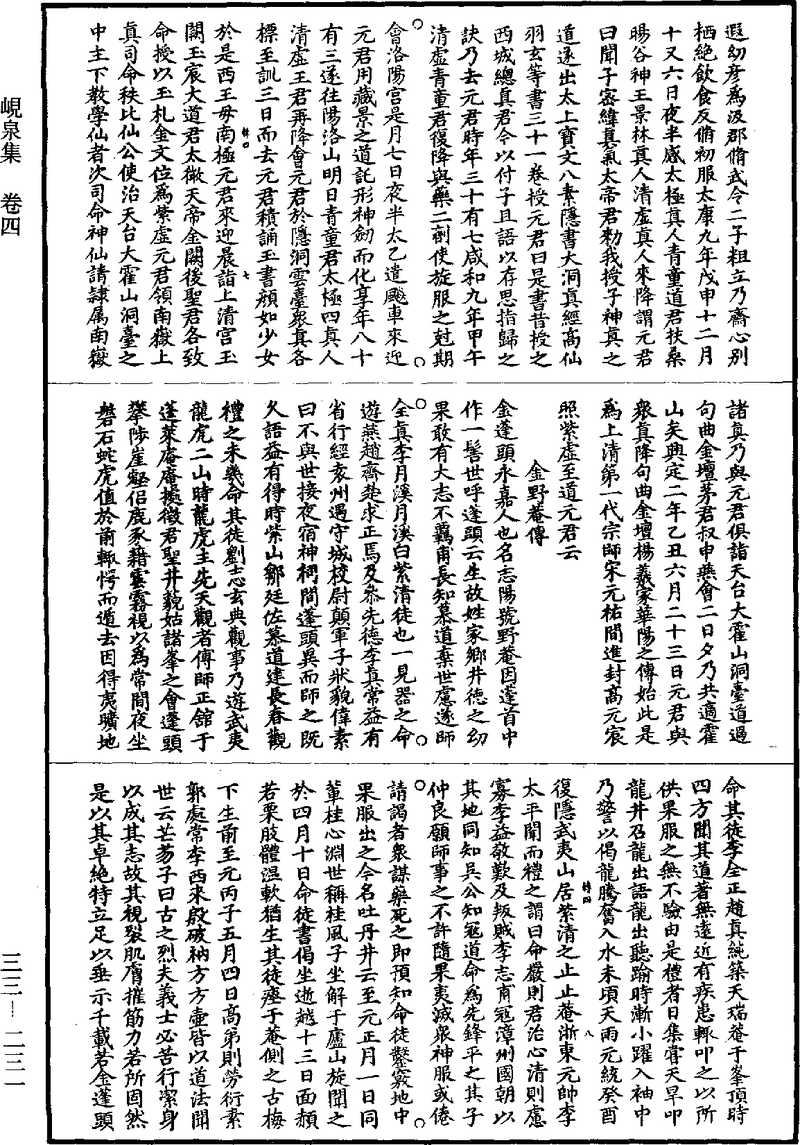 峴泉集　卷四
三三—二三一
遐幼彥爲汲郡脩武令二子粗立乃齋心別
栖絕飲食反脩初服太康九年戊申十二月
十又六日夜半感太極真人青童道君扶桑
暘谷神王景林真人清虛真人來降謂元君
曰聞子密緯真氣太帝君勑我授子神真之
道遂出太上寶文八素隱書大洞真經高仙
羽玄等書三十一卷授元君曰是書昔授之
西城總真君今以付子且語以存思指歸之
訣乃去元君時年三十有七咸和九年甲午
清虛青童君復降與藥二劑使旋服之尅期
會洛陽宮是月七日夜半太乙遣飈車來迎
元君用藏景之道託形神劒而化享年八十
有三遂往陽洛山明日青童君太極四真人
清虛王君再降會元君於隱洞雲臺衆真各
標至訓三日而去元君積誦玉書顏如少女
於是西王母南極元君來迎晨詣上清宮玉
闕玉宸大道君太微天帝金闕後聖君各致
命授以玉札金文位爲紫虛元君領南嶽上
真司命秩比仙公使治天台大霍山洞臺之
中主下教學仙者次司命神仙請隸属南嶽
諸真乃與元君俱詣天台大霍山洞臺道過
句曲金壇茅君叔申燕會二日夕乃共適霍
山矣興定二年乙丑六月二十三日元君與
衆真降句曲金壇楊羲家華陽之傳始此是
爲上清第一代宗師宋元祐間進封高元宸
照紫虛至道元君云
金野菴傳
金蓬頭永嘉人也名志陽號野菴因蓬首中
作一髻世呼蓬頭云生故姓家鄉井德之幼
果敢有大志不羈甫長知慕道棄世慮遂師
全真李月溪月溪白紫清徒也一見器之命
遊燕趙齊楚求正焉及叅先德李真常益有
省行經袁州遇守城校尉顛軍子狀貌偉素
曰不與世接夜宿神祠間蓬頭異而師之既
久語益有得時紫山鄒廷佐慕道建長春觀
禮之未幾命其徒劉志玄典觀事乃遊武夷
龍虎二山時龍虎主先天觀者傳師正館于
蓬萊庵庵攬徵君聖井藐姑諸峯之會蓬頭
攀陟崖壑侣鹿豕藉雲霧視以爲常間夜坐
磐石蛇虎值於前輙愕而遁去因得夷曠地
命其徒李全正趙真純築天瑞菴于峯頂時
四方聞其道著無遠近有疾患輙叩之以所
供果服之無不驗由是禮者日集嘗天旱叩
龍井召龍出語龍出聽踰時漸小躍入袖中
乃警以偈龍騰奮入水未頃天雨元統癸酉
復隱武夷山居紫清之止止菴浙東元帥李
太平聞而禮之謂曰命嚴則君治心清則慮
寡李益敬歎及叛賊李志甫冦漳州國朝以
其地同知吳公知冦道命爲先鋒平之其子
仲良願師事之不許隨果夷滅衆神服或倦
請謁者衆謀藥死之即預知命徒鑿竅地中
果服出之今名吐丹井云至元正月一日同
輩桂心淵世稱桂風子坐解于廬山旋聞之
於四月十日命徒書偈坐逝越十三日面頳
若栗肢體溫軟猶生其徒瘞于菴側之古梅
下生前至元丙子五月四日高第則勞衍素
郭處常李西來殷破衲方方壺皆以道法聞
世云芒芴子曰古之烈夫義士必苦行潔身
以成其志故其視裂肌膚摧筋力若所固然
是以其卓絕特立足以垂示千載若金蓬頭